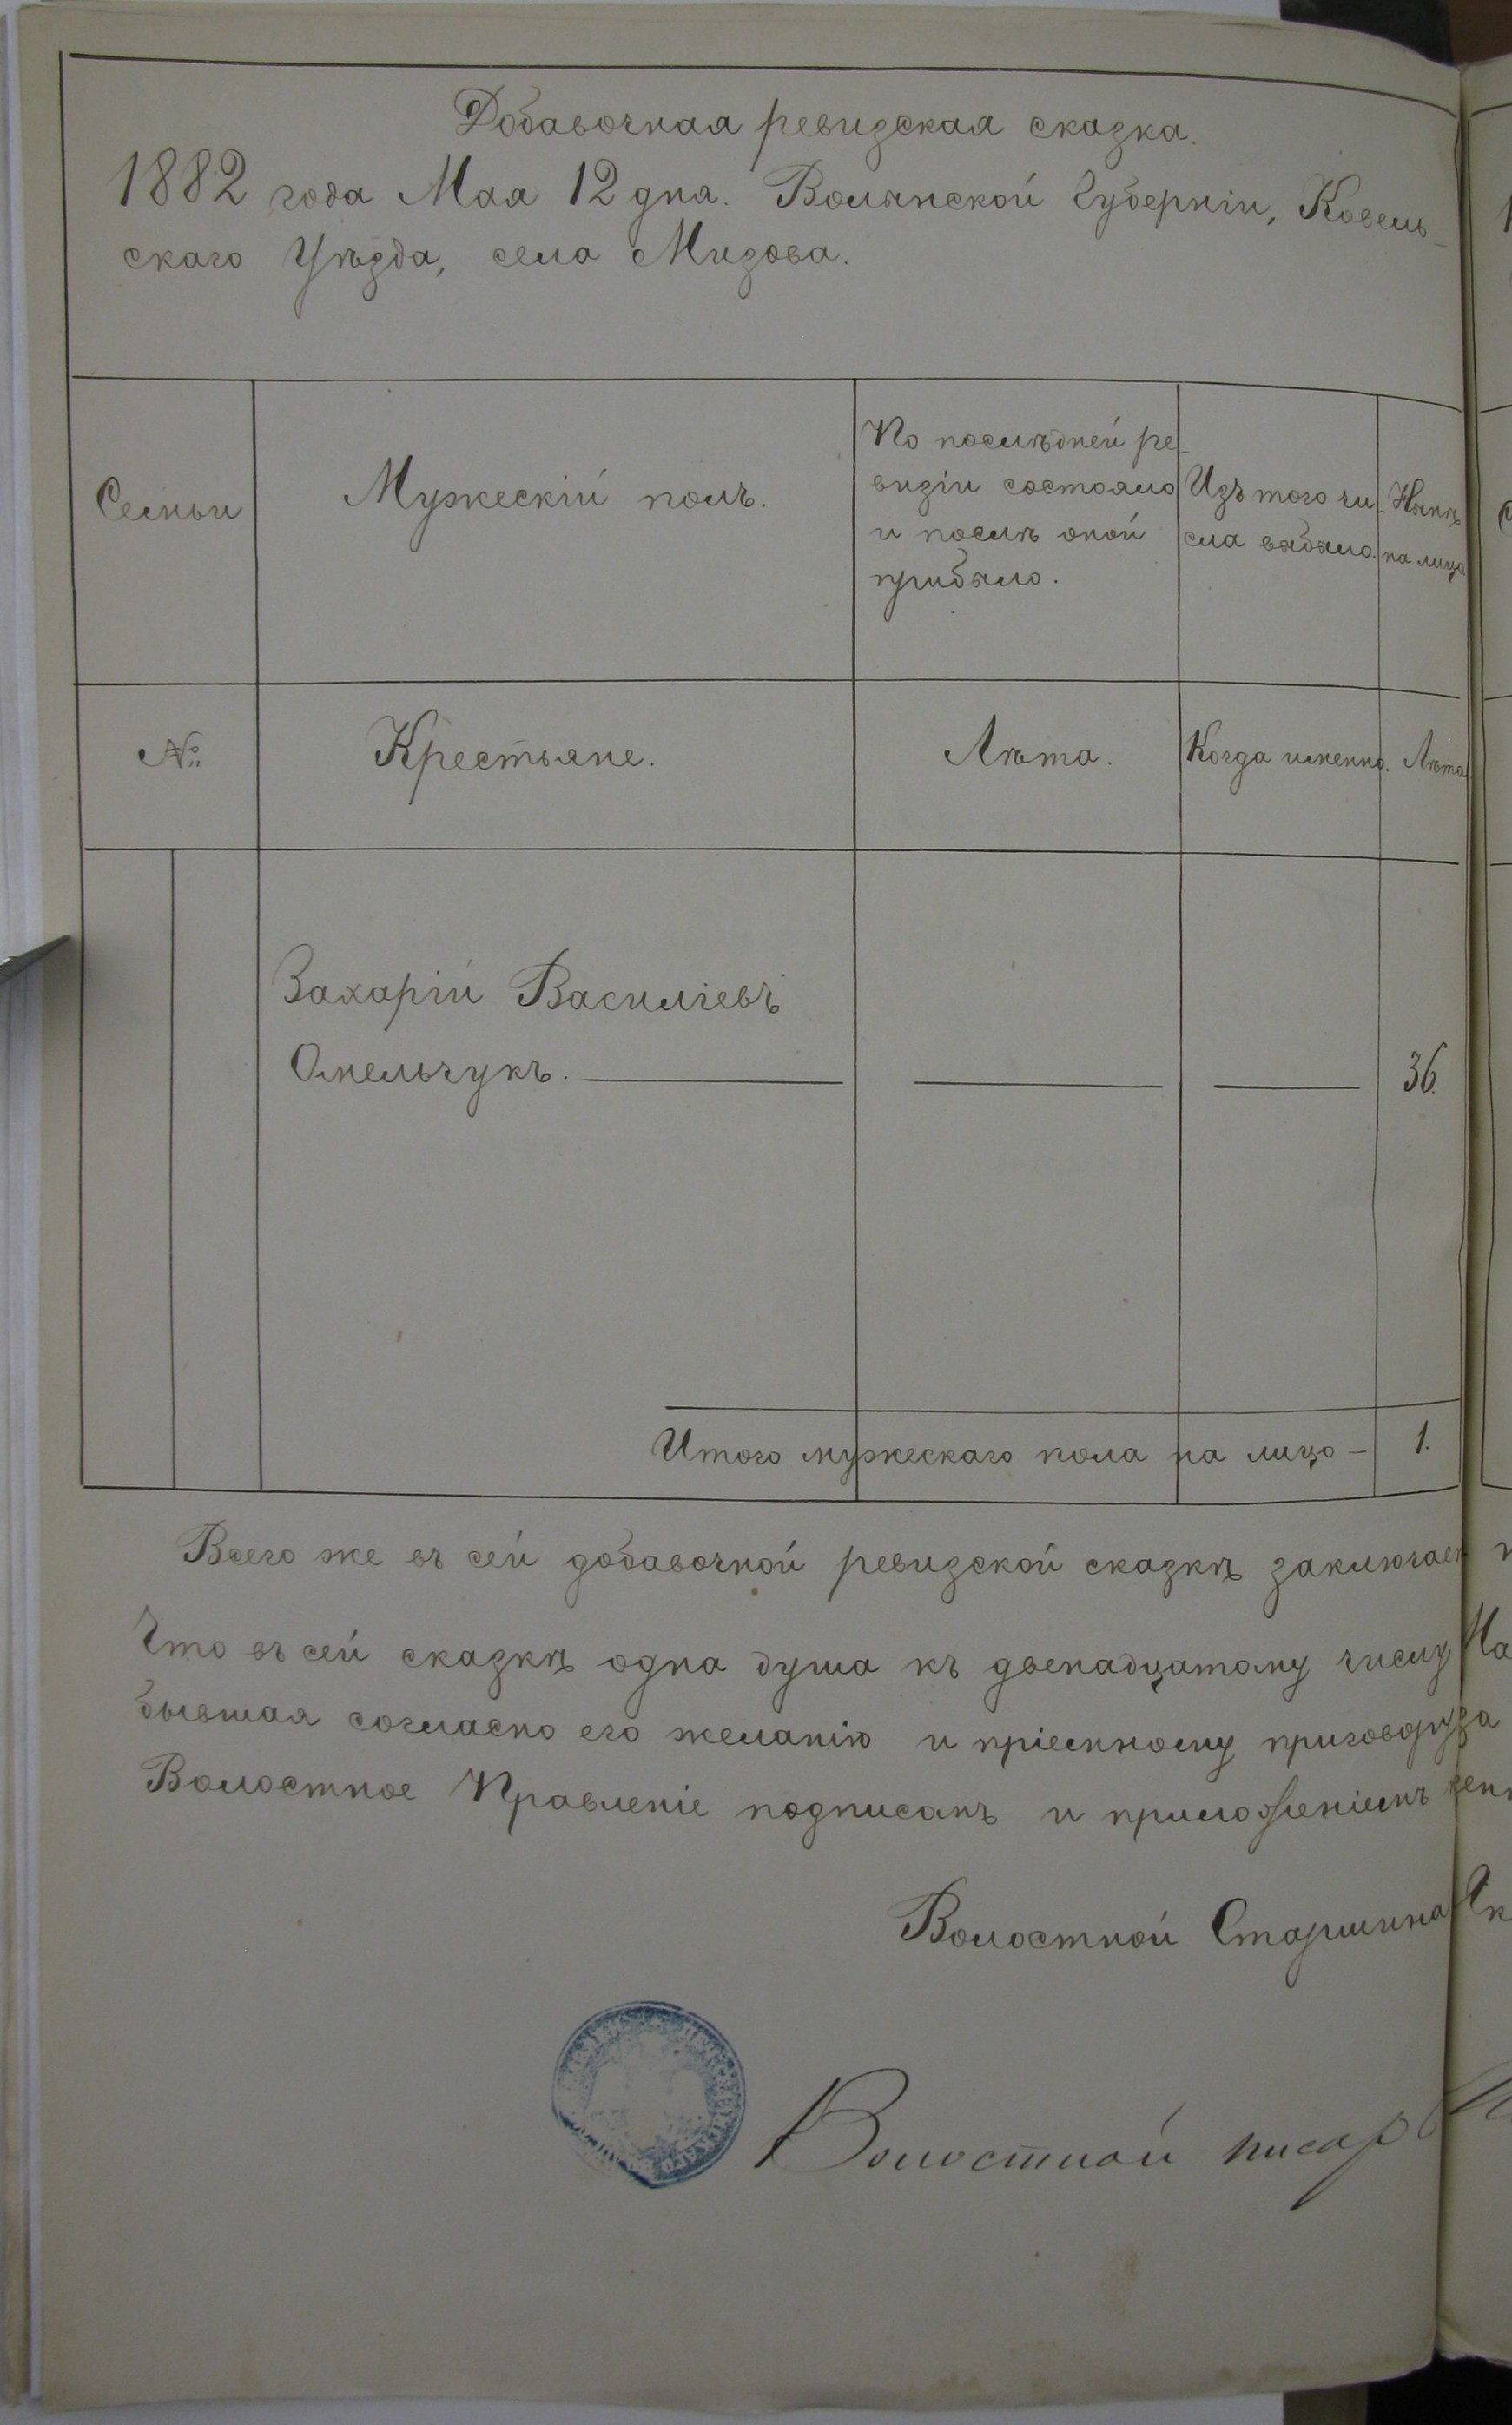 Добавочная ревизская сказка.
1882 года Мая 12 дня. Волынской Губерніи, Ковель-
скаго Уѣзда, села Мизова.
Семьи
Мужескій полъ.
По послѣдней ре-
визіи состояло
и послѣ оной
прибыло.
Изъ того чи-
сла выбыло.
Нынѣ
на лицо
№
Крестьяне.
Лѣта.
Когда именно.
Лѣта.
Захарій Василіевъ
Омельчукъ.
36.
Итого мужескаго пола на лицо - 1.
Всего же въ сей добавочной ревизской сказкѣ заключает
Что въ сей сказкѣ одна душа къ двенадцатому числу Ма
бывшая согласно его желанію и пріемному приговору за
Волостное Правленіе подписанъ и приложеніемъ
Волостной Старшина
Волостной писарь